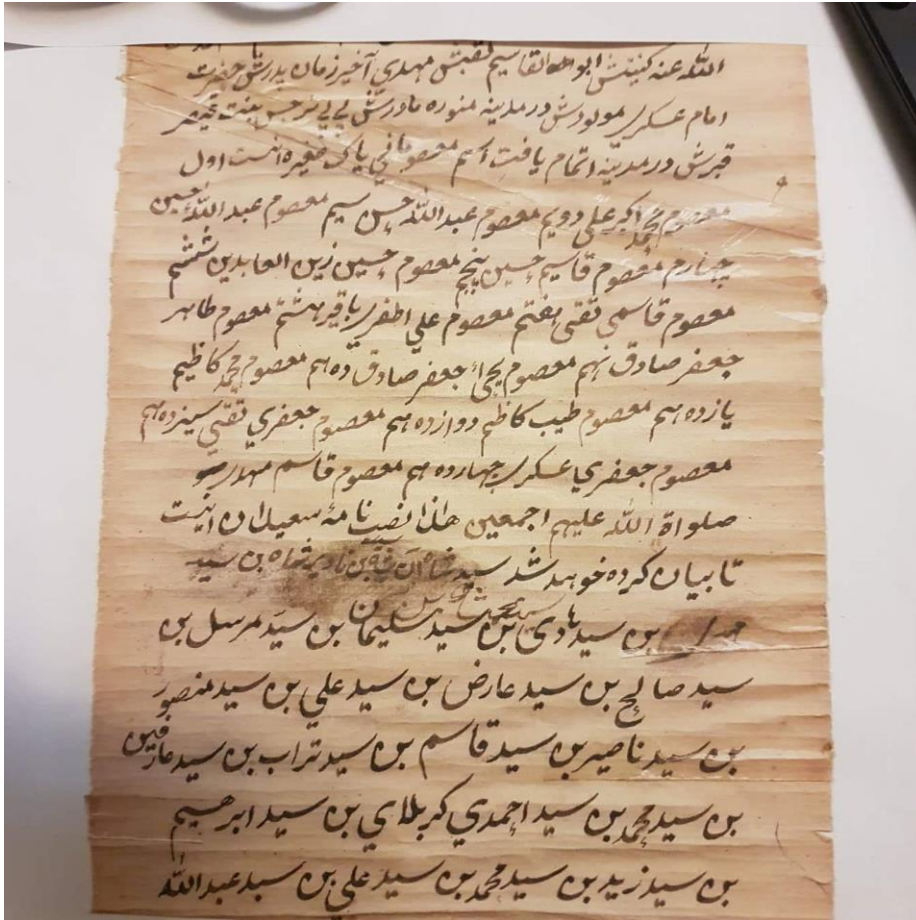 الله عنه کنیتش ابو القاسیم لقبش مهدي آخیر زمان پدرش حضرت
امام عسکری مولودش در مدینه منوره مادرش بی بی نرجس بنت قیصر
قبرش در مدینه اتمام یافت اسم معصوماني پاک صغیره انست اول
معصوم محمد اکبر علی دویم معصوم عبدالله حسن سیم معصوم عبدالله حسین
چهارم معصوم قاسیم حسین پنجم معصوم حسین زین العابدین ششم
معصوم قاسمی تقی هفتم معصوم علي اطفر باقیر هشتم معصوم طاهر
جعفر صادق نهم معصوم یحی جعفر صادق ده هم معصوم محمد کاظیم
یازده هم معصوم طیب کاظم دوازده هم معصوم جعفري تقی سیزده هم
معصوم جعفري عسکری چهارده هم معصوم قاسم
صلواة الله علیهم اجمعین هذا نصب نامهٔ سعیدان اینست
تا بیان کرده خوهد شد سید بن نادیر شاه بن سید
بن سید هادی بن سید سلیمان بن سید مرسل بن
سید صالح بن سید عارض بن سید علي بن سید منصور
بن سید ناصیر بن سید قاسم بن سید تراب بن سید عارفین
بن سید محمد بن سید احمدي کربلاي بن سید ابرهیم
بن سید زید بن سید محمد بن سید علي بن سید عبدالله